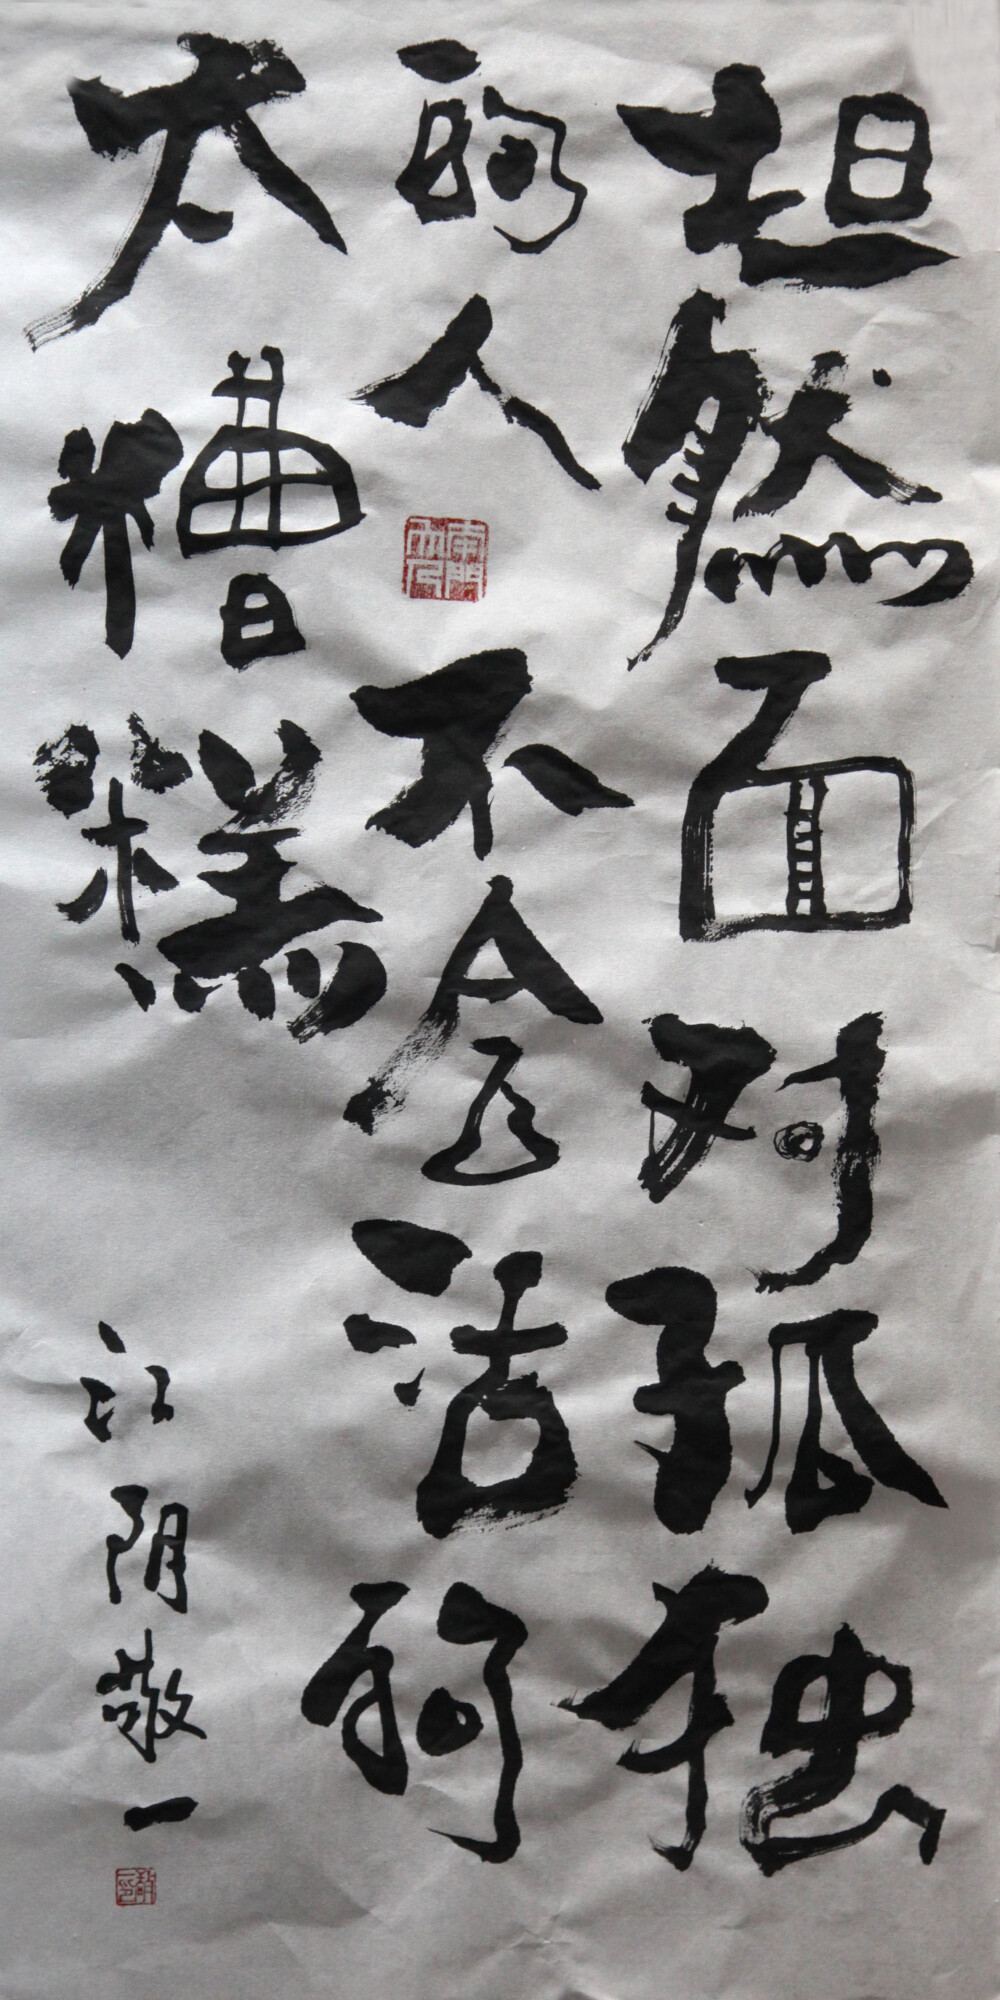 坦然面对孤独
的人不会活的
太糟糕
江阴敬一